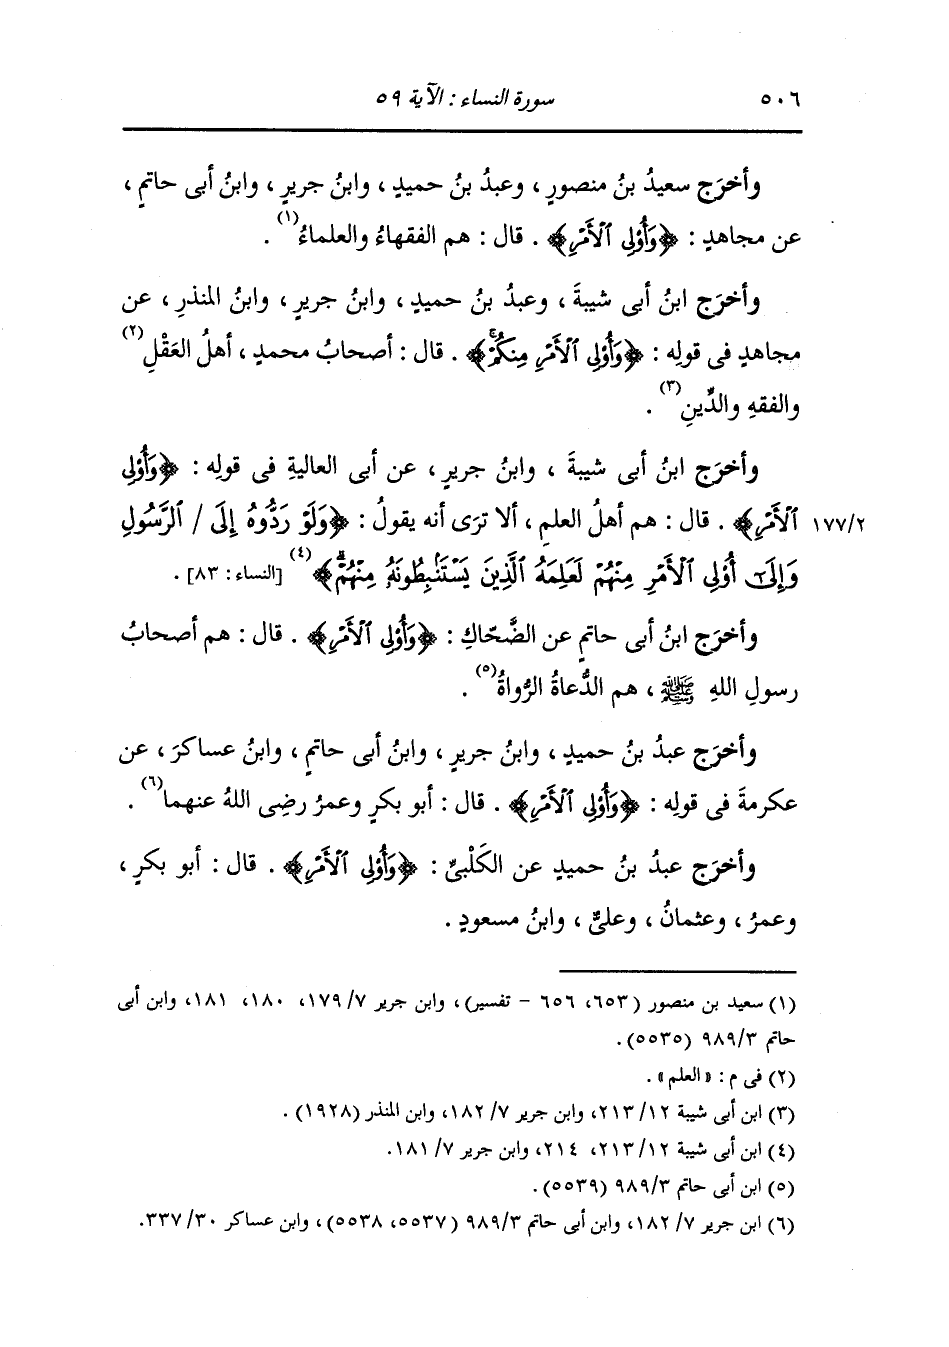 ٥٠٦ سورة النساء : الآية ٥٩
وأخرَج سعيدُ بنُ منصورٍ ، وعبدُ بنُ حميدٍ ، وابنُ جريرٍ ، وابنُ أبى حاتمٍ ،
عن مجاهدٍ : ﴿وَأُوْلِى ٱلْأَمْرِ﴾ . قال : هم الفقهاءُ والعلماءُ(١) .
وأخرَج ابنُ أبى شيبةَ ، وعبدُ بنُ حميدٍ ، وابنُ جريرٍ ، وابنُ المنذرِ ، عن
مجاهدٍ فى قولِه : ﴿وَأُوْلِى ٱلْأَمْرِ مِنكُمْۖ﴾ . قال : أصحابُ محمدٍ ، أهلُ العَقْلِ(٢)
والفقهِ والدِّينِ(٣) .
وأخرَج ابنُ أبى شيبةَ ، وابنُ جريرٍ ، عن أبى العاليةِ فى قولِه : ﴿وَأُوْلِى
١٧٧/٢ ٱلْأَمْرِ﴾ . قال : هم أهلُ العلمِ ، ألا ترَى أنه يقولُ : ﴿وَلَوْ رَدُّوهُ إِلَى / ٱلرَّسُولِ
وَإِلَىٰٓ أُوْلِى ٱلْأَمْرِ مِنْهُمْ لَعَلِمَهُ ٱلَّذِينَ يَسْتَنۢبِطُونَهُۥ مِنْهُمْۗ﴾(٤) [النساء : ٨٣] .
وأخرَج ابنُ أبى حاتمٍ عن الضَّحّاكِ : ﴿وَأُوْلِى ٱلْأَمْرِ﴾ . قال : هم أصحابُ
رسولِ اللهِ ﷺ ، هم الدُّعاةُ الرُّواةُ(٥) .
وأخرَج عبدُ بنُ حميدٍ ، وابنُ جريرٍ ، وابنُ أبى حاتمٍ ، وابنُ عساكرَ ، عن
عكرمةَ فى قولِه : ﴿وَأُوْلِى ٱلْأَمْرِ﴾ . قال : أبو بكرٍ وعمرُ رضِى اللهُ عنهما(٦) .
وأخرَج عبدُ بنُ حميدٍ عن الكَلْبىِّ : ﴿وَأُوْلِى ٱلْأَمْرِ﴾ . قال : أبو بكرٍ ،
وعمرُ ، وعثمانُ ، وعلىٌّ ، وابنُ مسعودٍ .
(١) سعيد بن منصور (٦٥٣، ٦٥٦ - تفسير)، وابن جرير ٧/ ١٧٩، ١٨٠، ١٨١، وابن أبى
حاتم ٩٨٩/٣ (٥٥٣٥).
(٢) فى م : «العلم» .
(٣) ابن أبى شيبة ٢١٣/١٢، وابن جرير ٧/ ١٨٢، وابن المنذر (١٩٢٨) .
(٤) ابن أبى شيبة ٢١٣/١٢، ٢١٤، وابن جرير ٧/ ١٨١.
(٥) ابن أبى حاتم ٩٨٩/٣ (٥٥٣٩).
(٦) ابن جرير ٧/ ١٨٢، وابن أبى حاتم ٩٨٩/٣ (٥٥٣٧، ٥٥٣٨)، وابن عساكر ٣٠/ ٣٣٧.